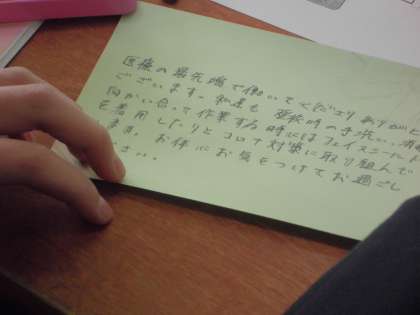 医療の最先端で働いてくださりありがと
ございます。私達も 登校時の手洗い、消
向かい合って作業する時にはフェイスシール
を着用したりとコロナ対策に取り組んで
ます。お体にお気をつけてお過ごし
ださい。